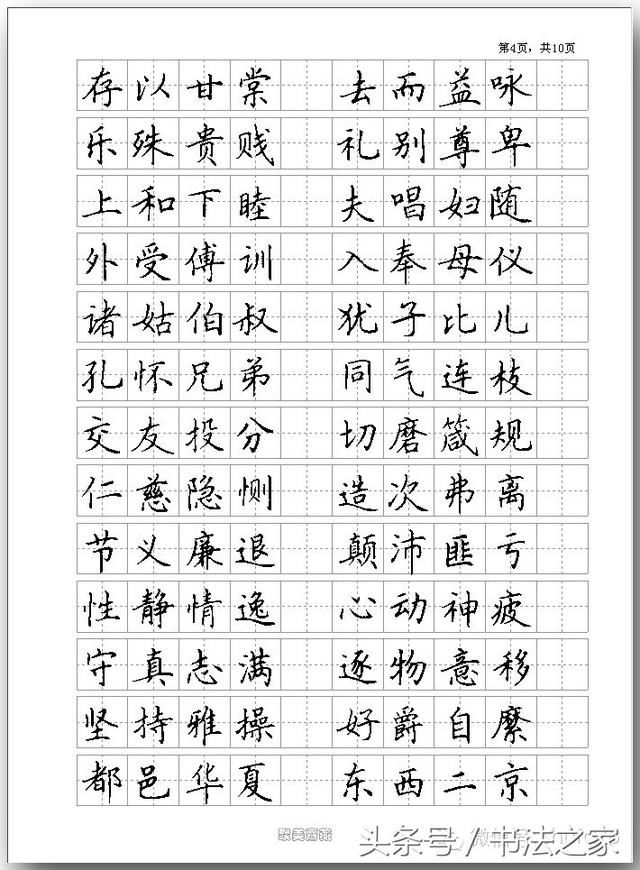 第4页，共10页
存以甘棠 去而益咏
乐殊贵贱 礼别尊卑
上和下睦 夫唱妇随
外受傅训 入奉母仪
诸姑伯叔 犹子比儿
孔怀兄弟 同气连枝
交友投分 切磨箴规
仁慈隐恻 造次弗离
节义廉退 颠沛匪亏
性静情逸 心动神疲
守真志满 逐物意移
坚持雅操 好爵自縻
都邑华夏 东西二京
头条号/书法之家